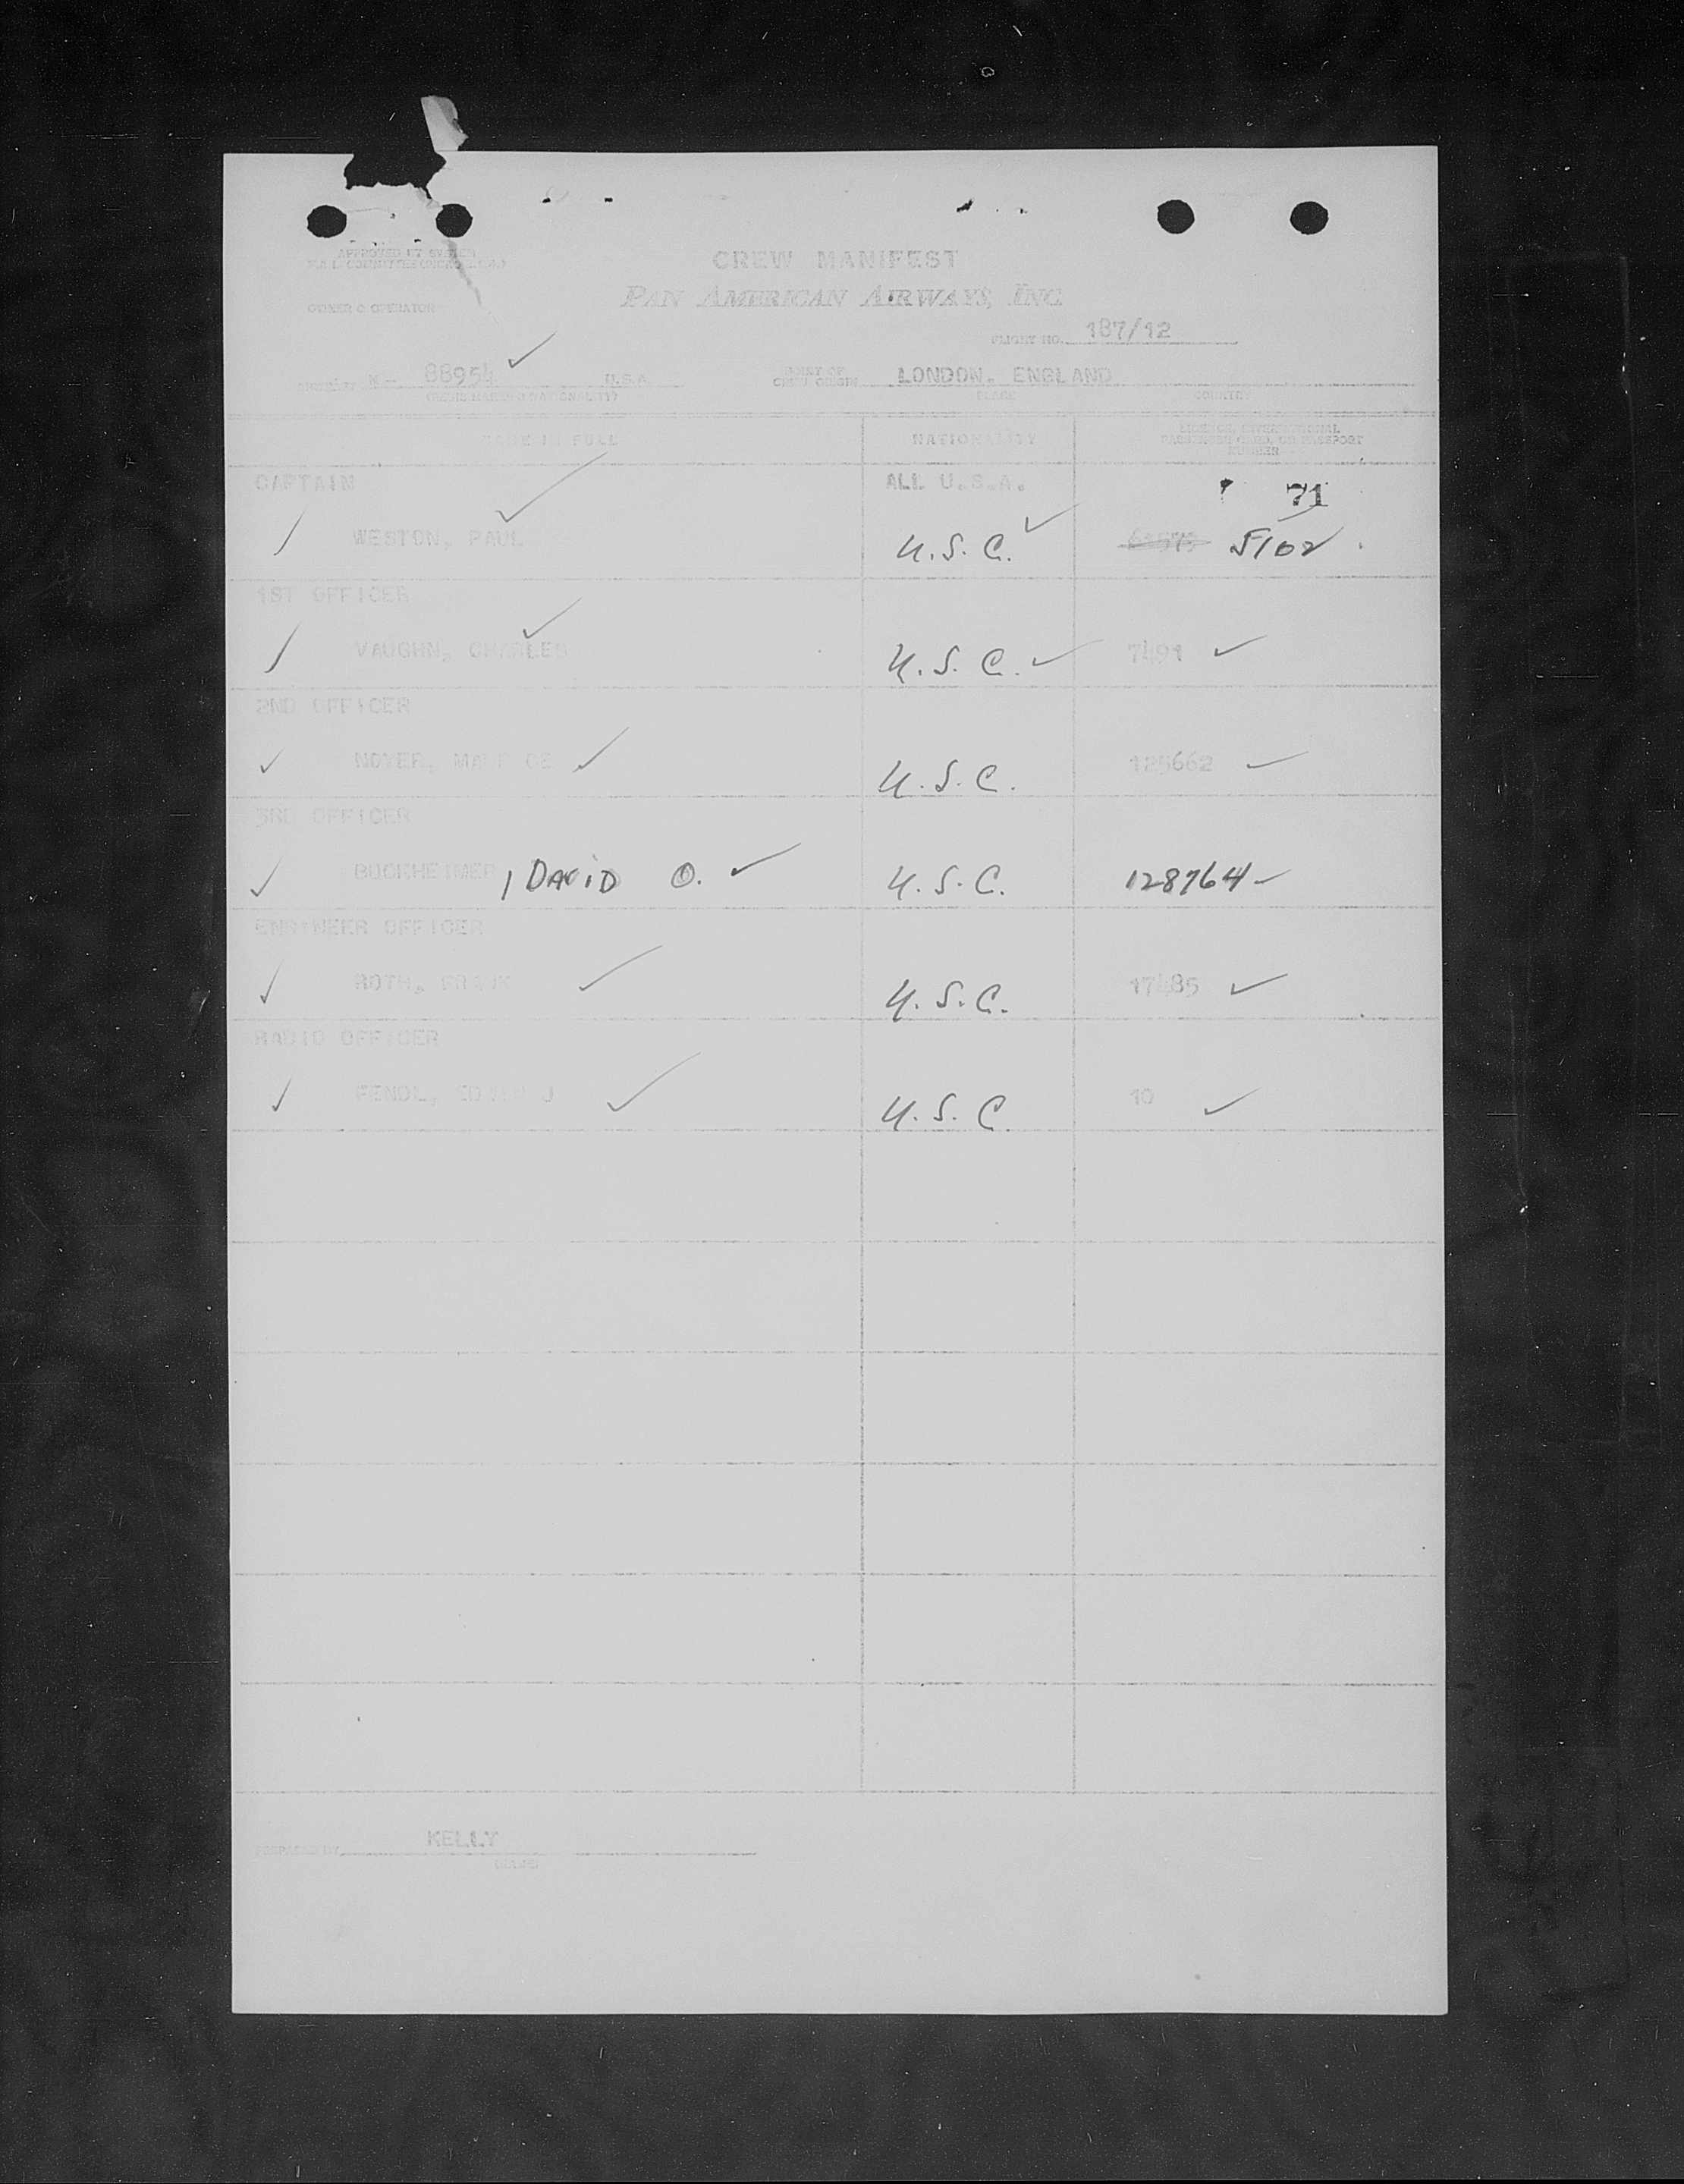 APPROVED BY SYSTEM
CREW MANIFEST
PAN AMERICAN AIRWAYS, INC.
OWNER O OPERATOR
FLIGHT NO. 187/12
AIRCRAFT N - 88954 ✓ U.S.A. POINT OF CREW ORIGIN LONDON, ENGLAND
(REGIS MARKS & NATIONALITY) PLACE COUNTRY
NAME IN FULL NATIONALITY LICENSE, INTERNATIONAL PASSENGERS CARD, OR PASSPORT NUMBER
CAPTAIN ALL U.S.A. 71
WESTON, PAUL ✓ U.S.C. ✓ 5102
1ST OFFICER
VAUGHN, CHARLES ✓ U.S.C. ✓ 7491 ✓
2ND OFFICER
✓ NOYER, ✓ U.S.C. 125662 ✓
3RD OFFICER
✓ BUCKHEIMER, DAVID O. ✓ U.S.C. 128764 ✓
ENGINEER OFFICER
✓ ROTH, FRANK ✓ U.S.C. 17485 ✓
RADIO OFFICER
✓ FENDL, J ✓ U.S.C. 10 ✓
PREPARED BY KELLY
(NAME)